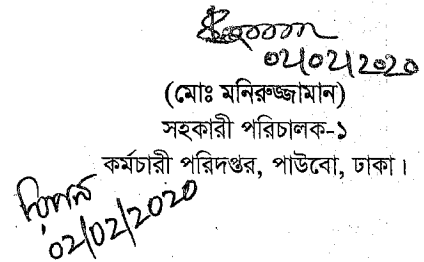 02/02/2020
(মোঃ মনিরুজ্জামান)
সহকারী পরিচালক-১
কর্মচারী পরিদপ্তর, পাউবো, ঢাকা।
02/02/2020